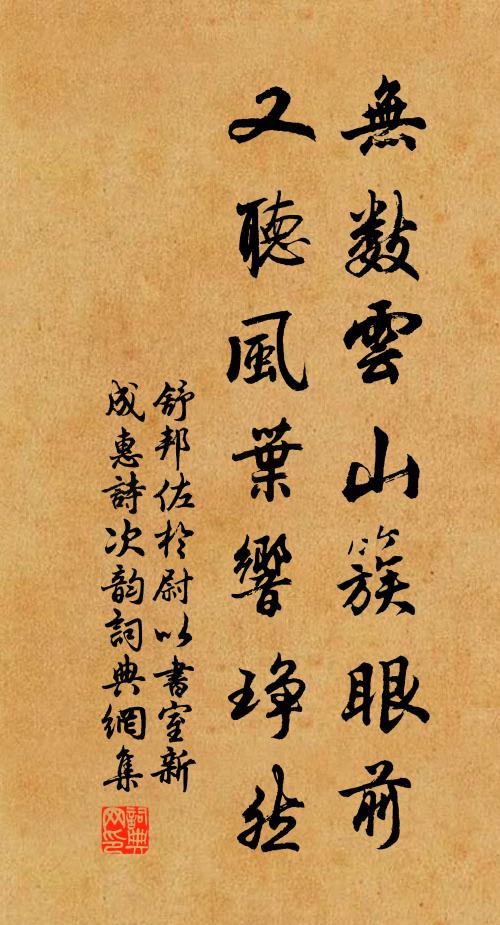 無數雲山簇眼前
又聽風葉響琤然
舒邦佐於尉以書室新
成惠詩次韵詞典網集
詞典网印